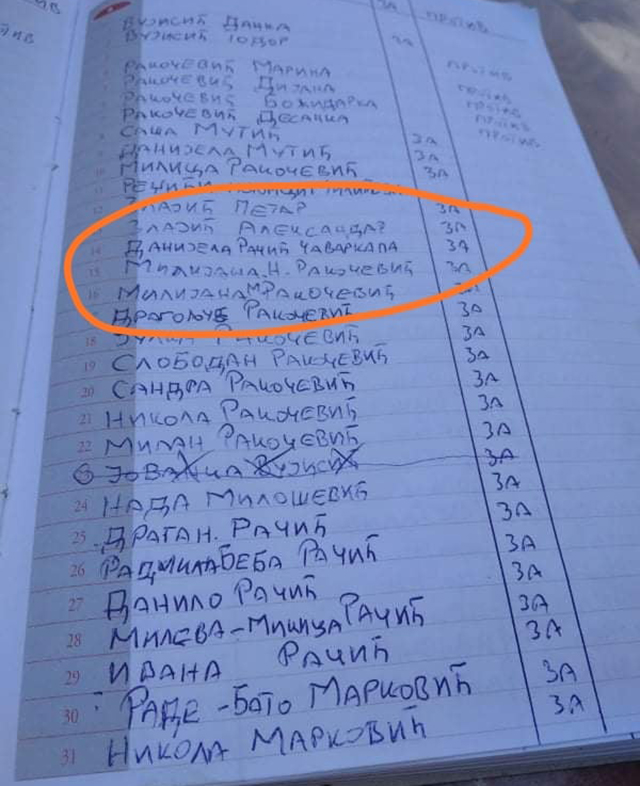 ЗА ПРОТИВ
ВУЈИСИЋ ДАНКА
ВУЈИСИЋ ТОДОР ЗА
РАКОЧЕВИЋ МАРИНА ПРОТИВ
РАКОЧЕВИЋ ДИЈАНА ПРОТИВ
РАКОЧЕВИЋ БОЖИДАРКА ПРОТИВ
РАКОЧЕВИЋ ДЕСАНКА ПРОТИВ
САША МУТИЋ ЗА ПРОТИВ
ДАНИЈЕЛА МУТИЋ ЗА
10 МИЛИЦА РАКОЧЕВИЋ ЗА
11
12 ЗЛАЈИЋ ПЕТАР ЗА
ЗЛАЈИЋ АЛЕКСАНДАР ЗА
14 ДАНИЈЕЛА РАЧИЋ ЧАВАРКАПА ЗА
15 МИЛИЈАНА Н. РАКОЧЕВИЋ ЗА
16 МИЛИЈАНА М РАКОЧЕВИЋ ЗА
ДРАГОЉУБ РАКОЧЕВИЋ ЗА
18 РАКОЧЕВИЋ ЗА
19 СЛОБОДАН РАКОЧЕВИЋ ЗА
20 САНДРА РАКОЧЕВИЋ ЗА
21 НИКОЛА РАКОЧЕВИЋ ЗА
22 МИЛАН РАКОЧЕВИЋ ЗА
ЈОВАНКА ВУЈИСИЋ ЗА
24 НАДА МИЛОШЕВИЋ ЗА
25 ДРАГАН. РАЧИЋ ЗА
26 РАДМИЛА БЕБА РАЧИЋ ЗА
27 ДАНИЛО РАЧИЋ ЗА
28 МИЛЕВА-МИЦИЦА РАЧИЋ ЗА
29 ИВАНА РАЧИЋ ЗА
30 РАДЕ-БАТО МАРКОВИЋ ЗА
31 НИКОЛА МАРКОВИЋ ЗА